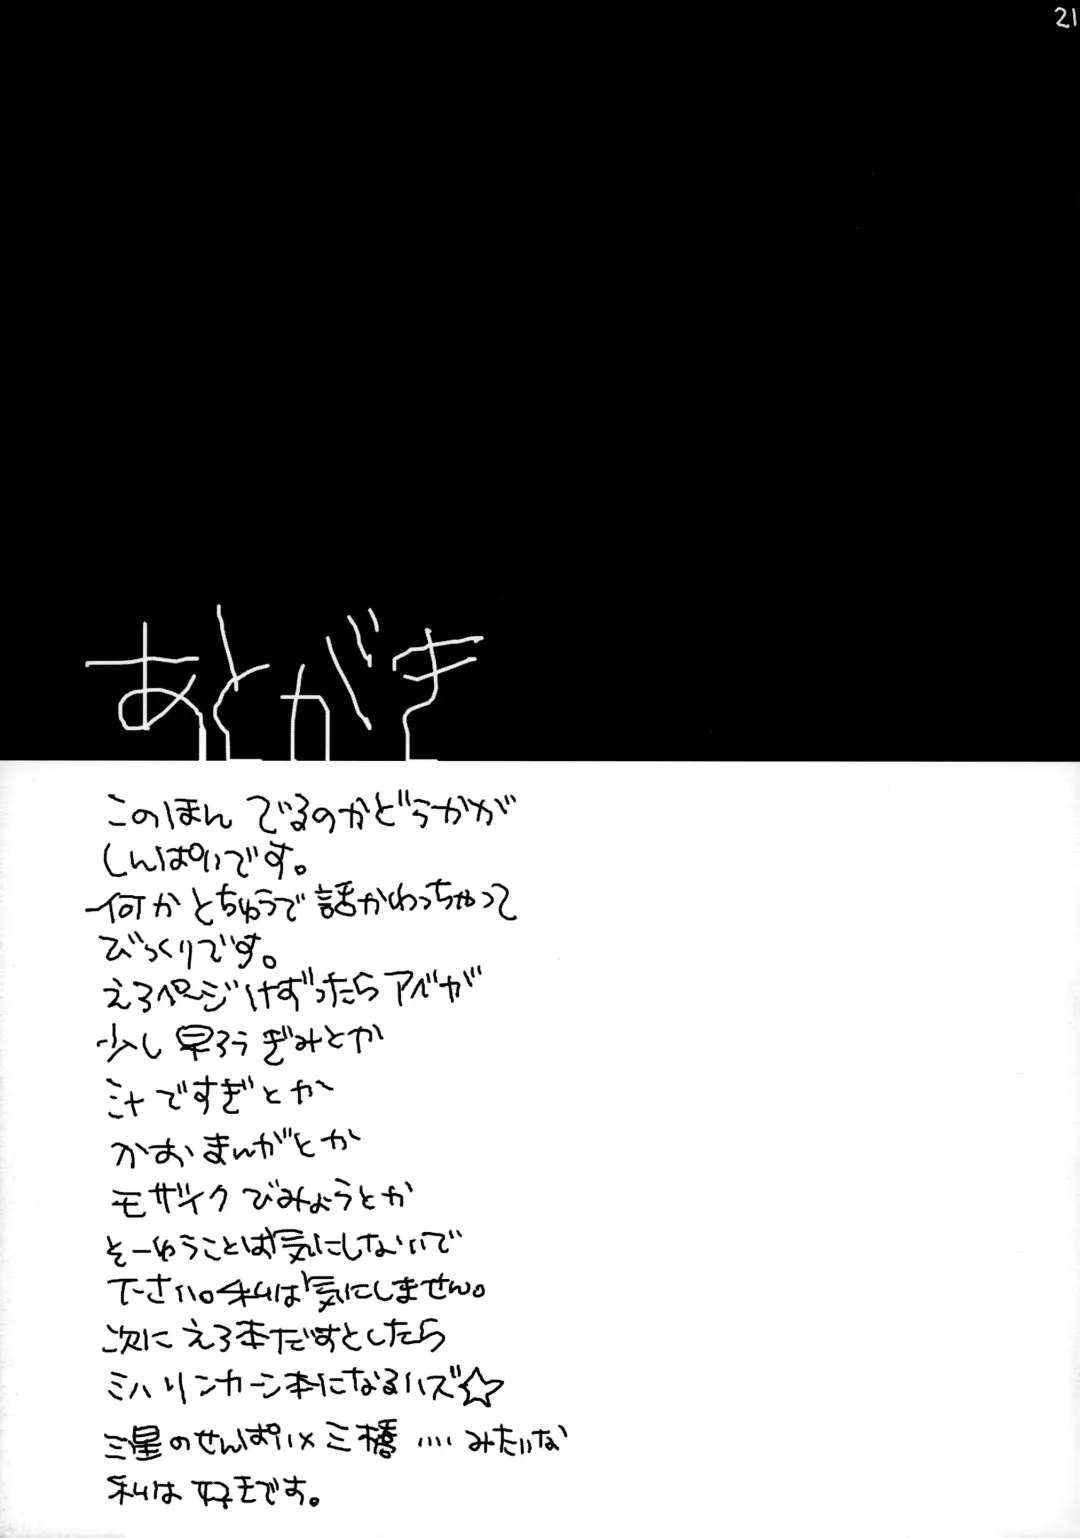 21
あとがき
このほん でるのかどうかが
しんぱいです。
何か とちゅうで 話かわっちゃって
びっくりです。
えろページけずったらアベが
少し 早ろうぎみとか
汁ですぎとか
かおまんがとか
モザイクびみょうとか
そーゆうことは気にしないで
下さい。私は気にしません。
次に えろ本だすとしたら
ミハリンカーン本になるハズ☆
三星のせんぱい×三橋‥‥みたいな
私は 好きです。